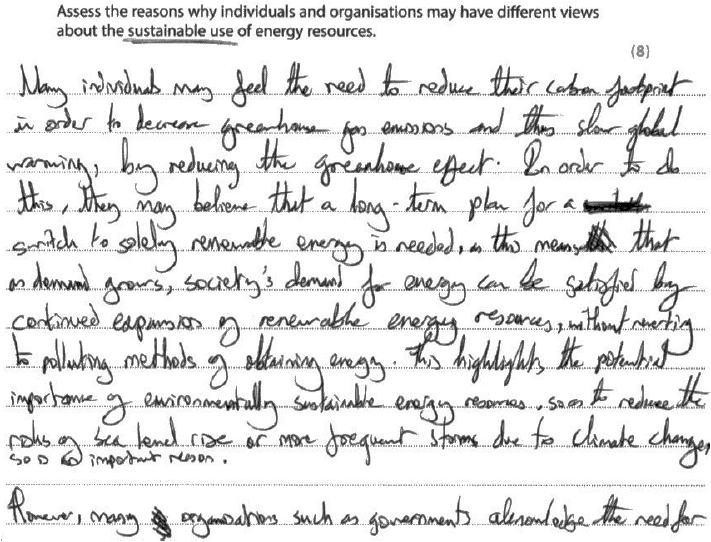 Assess the reasons why individuals and organisations may have different views
about the sustainable use of energy resources.
(8)
Many individuals may feel the need to reduce their carbon footprint
in order to decrease greenhouse gas emissions and thus slow global
warming, by reducing the greenhouse effect. In order to do
this, they may believe that a long-term plan for a
switch to solely renewable energy is needed, as this means that
as demand grows, society's demand for energy can be satisfied by
continued expansion of renewable energy resources, without reverting
to polluting methods of obtaining energy. This highlights the potential
importance of environmentally sustainable energy resources, so as to reduce the
risks of sea level rise or more frequent storms due to climate change,
so is an important reason.
However, many organisations such as governments acknowledge the need for